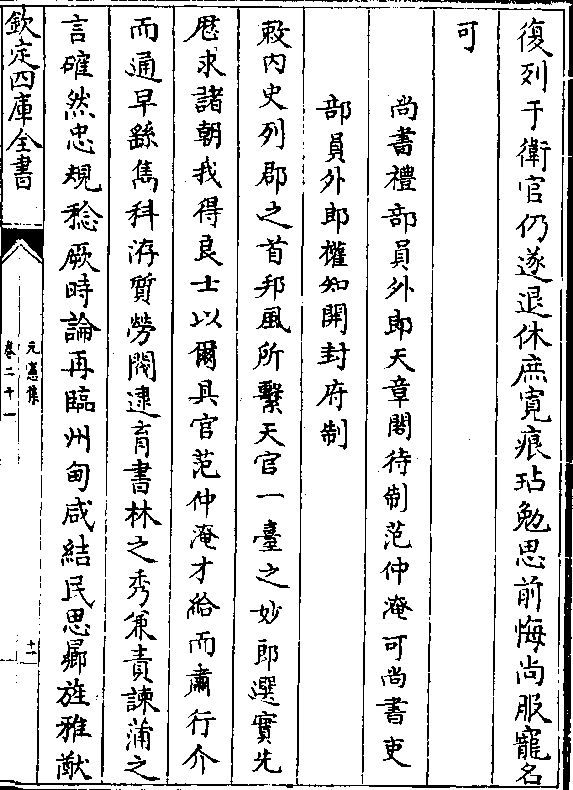 復列于衛官仍遂退休庶寛痕玷勉思前悔尚服寵名
可
尚書禮部員外郎天章閣待制范仲淹可尚書吏
部員外郎權知開封府制
敕内史列郡之首邦風所繫天官一臺之妙郎選實先
歴求諸朝我得良士以爾具官范仲淹才給而肅行介
而通早繇雋科洊質勞閥逮育書林之秀兼責諫蒲之
言確然忠規稔厥時論再臨州甸咸結民思曏旌雅猷
欽定四庫全書
元憲集
卷二十一
十一